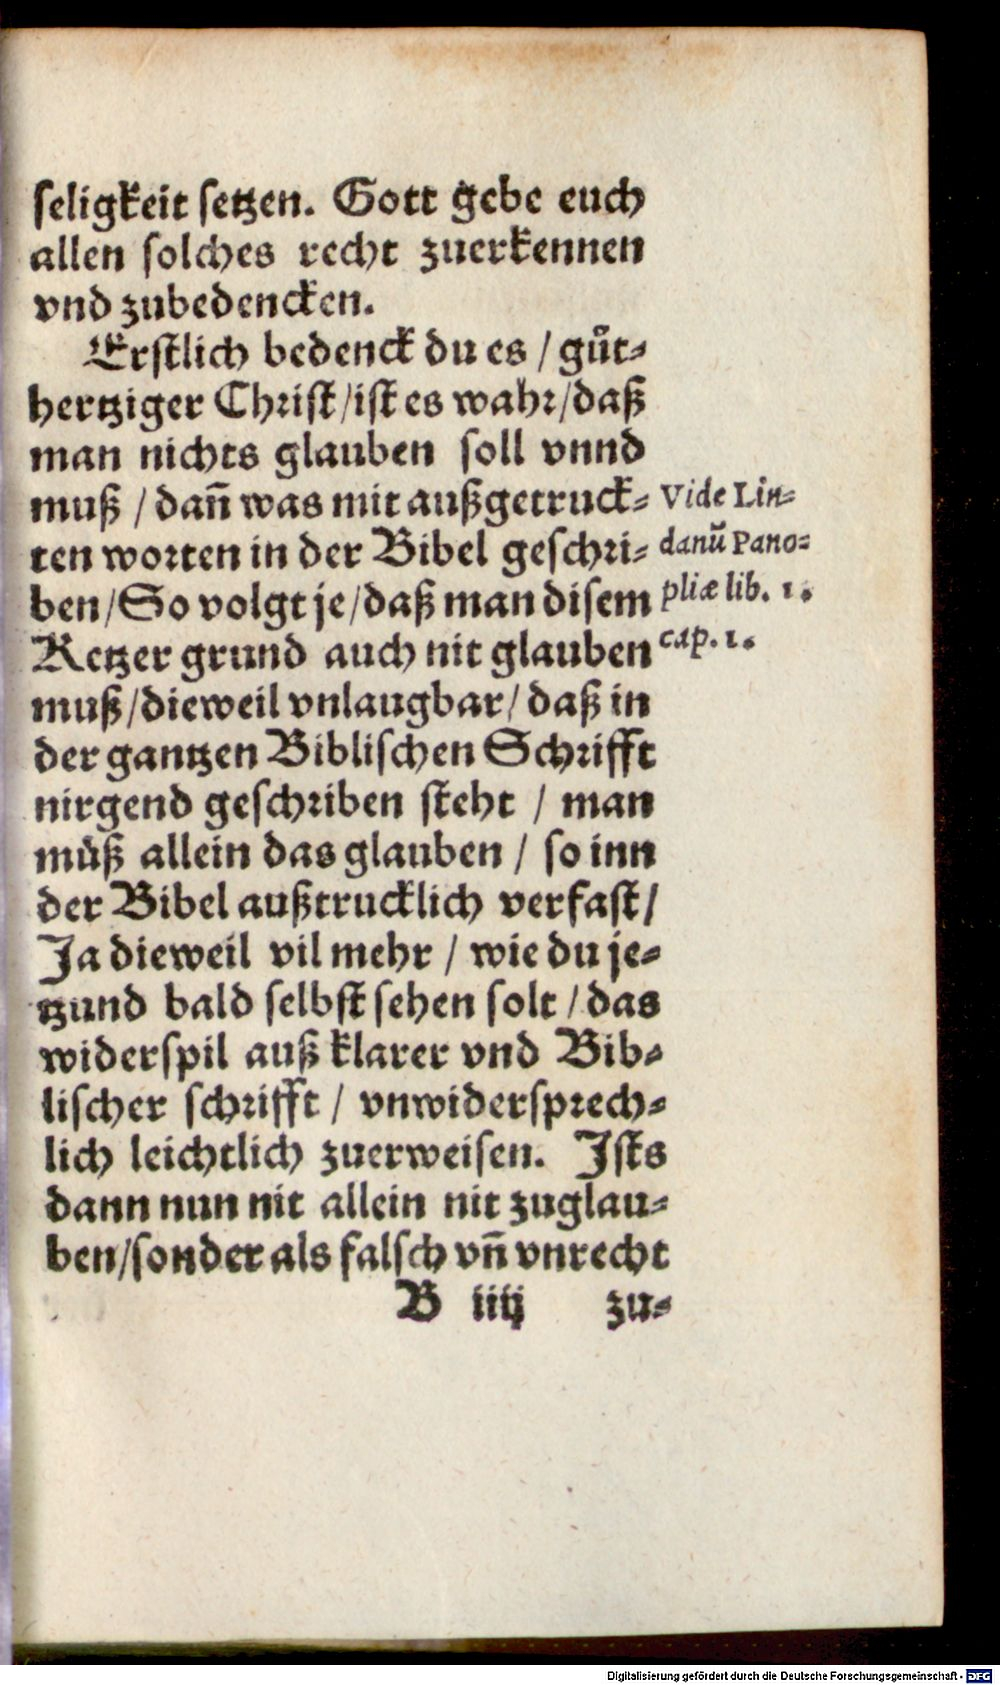 seligkeit setzen. Gott gebe euch
allen solches recht zuerkennen
vnd zubedencken.
Erstlich bedenck du es / gůt-
hertziger Christ / ist es wahr / daß
man nichts glauben soll vnnd
muß / dañ was mit außgetruck-
ten worten in der Bibel geschri-
ben / So volgt je / daß man disem
Ketzer grund auch nit glauben
muß / dieweil vnlaugbar / daß in
der gantzen Biblischen Schrifft
nirgend geschriben steht / man
můß allein das glauben / so inn
der Bibel außtrucklich verfast /
Ja dieweil vil mehr / wie du je-
tzund bald selbst sehen solt / das
widerspil auß klarer vnd Bib-
lischer schrifft / vnwidersprech-
lich leichtlich zuerweisen. Ists
dann nun nit allein nit zuglau-
ben / sonder als falsch vñ vnrecht
B iiij zu-
Vide Lin-
danũ Pano-
pliæ lib. 1.
cap. 1.
Digitalisierung gefördert durch die Deutsche Forschungsgemeinschaft - DFG